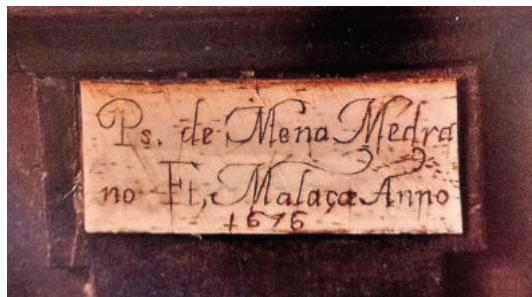 Ps. de Mena Medra
no Ft, Malaçæ Anno
1676